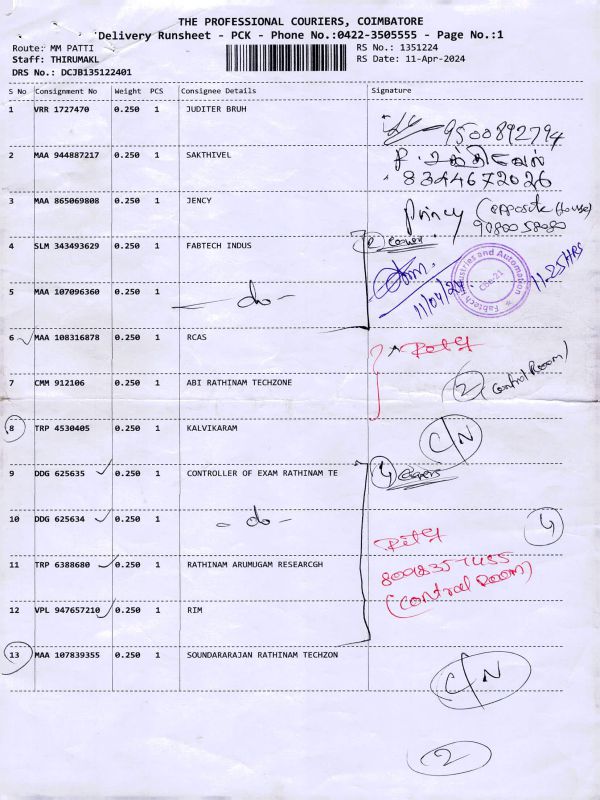 THE PROFESSIONAL COURIERS, COIMBATORE
Delivery Runsheet - PCK - Phone No.:0422-3505555 - Page No.:1
Route: MM PATTI RS No.: 1351224
Staff: THIRUMAKL RS Date: 11-Apr-2024
DRS No.: DCJB135122401
S No Consignment No Weight PCS Consignee Details Signature
1 VRR 1727470 0.250 1 JUDITER BRUH
9500892794
2 MAA 944887217 0.250 1 SAKTHIVEL P. சக்திவேல்
8344672026
3 MAA 865069808 0.250 1 JENCY Princy (opposite House)
9080058080
4 SLM 343493629 0.250 1 FABTECH INDUS 2 Cover
Fabtech Industries and Automation CBE-21
11/04/24 11.25HRS
5 MAA 107096360 0.250 1 - do -
6 MAA 108316878 0.250 1 RCAS
7 CMM 912106 0.250 1 ABI RATHINAM TECHZONE 2 (Control Room)
8 TRP 4530405 0.250 1 KALVIKARAM C/N
9 DDG 625635 0.250 1 CONTROLLER OF EXAM RATHINAM TE 4 Covers
10 DDG 625634 0.250 1 - do - 4
11 TRP 6388680 0.250 1 RATHINAM ARUMUGAM RESEARCGH
(Control Room)
12 VPL 947657210 0.250 1 RIM
13 MAA 107839355 0.250 1 SOUNDARARAJAN RATHINAM TECHZON C/N
2